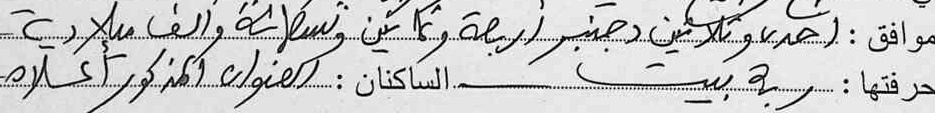 موافق : احدى و ثلاثين دجنبر أربعة وثمانين وتسعمائة وألف ميلادية
حرفتها : ربة بيت الساكنان : العنوان المذكور أعلاه